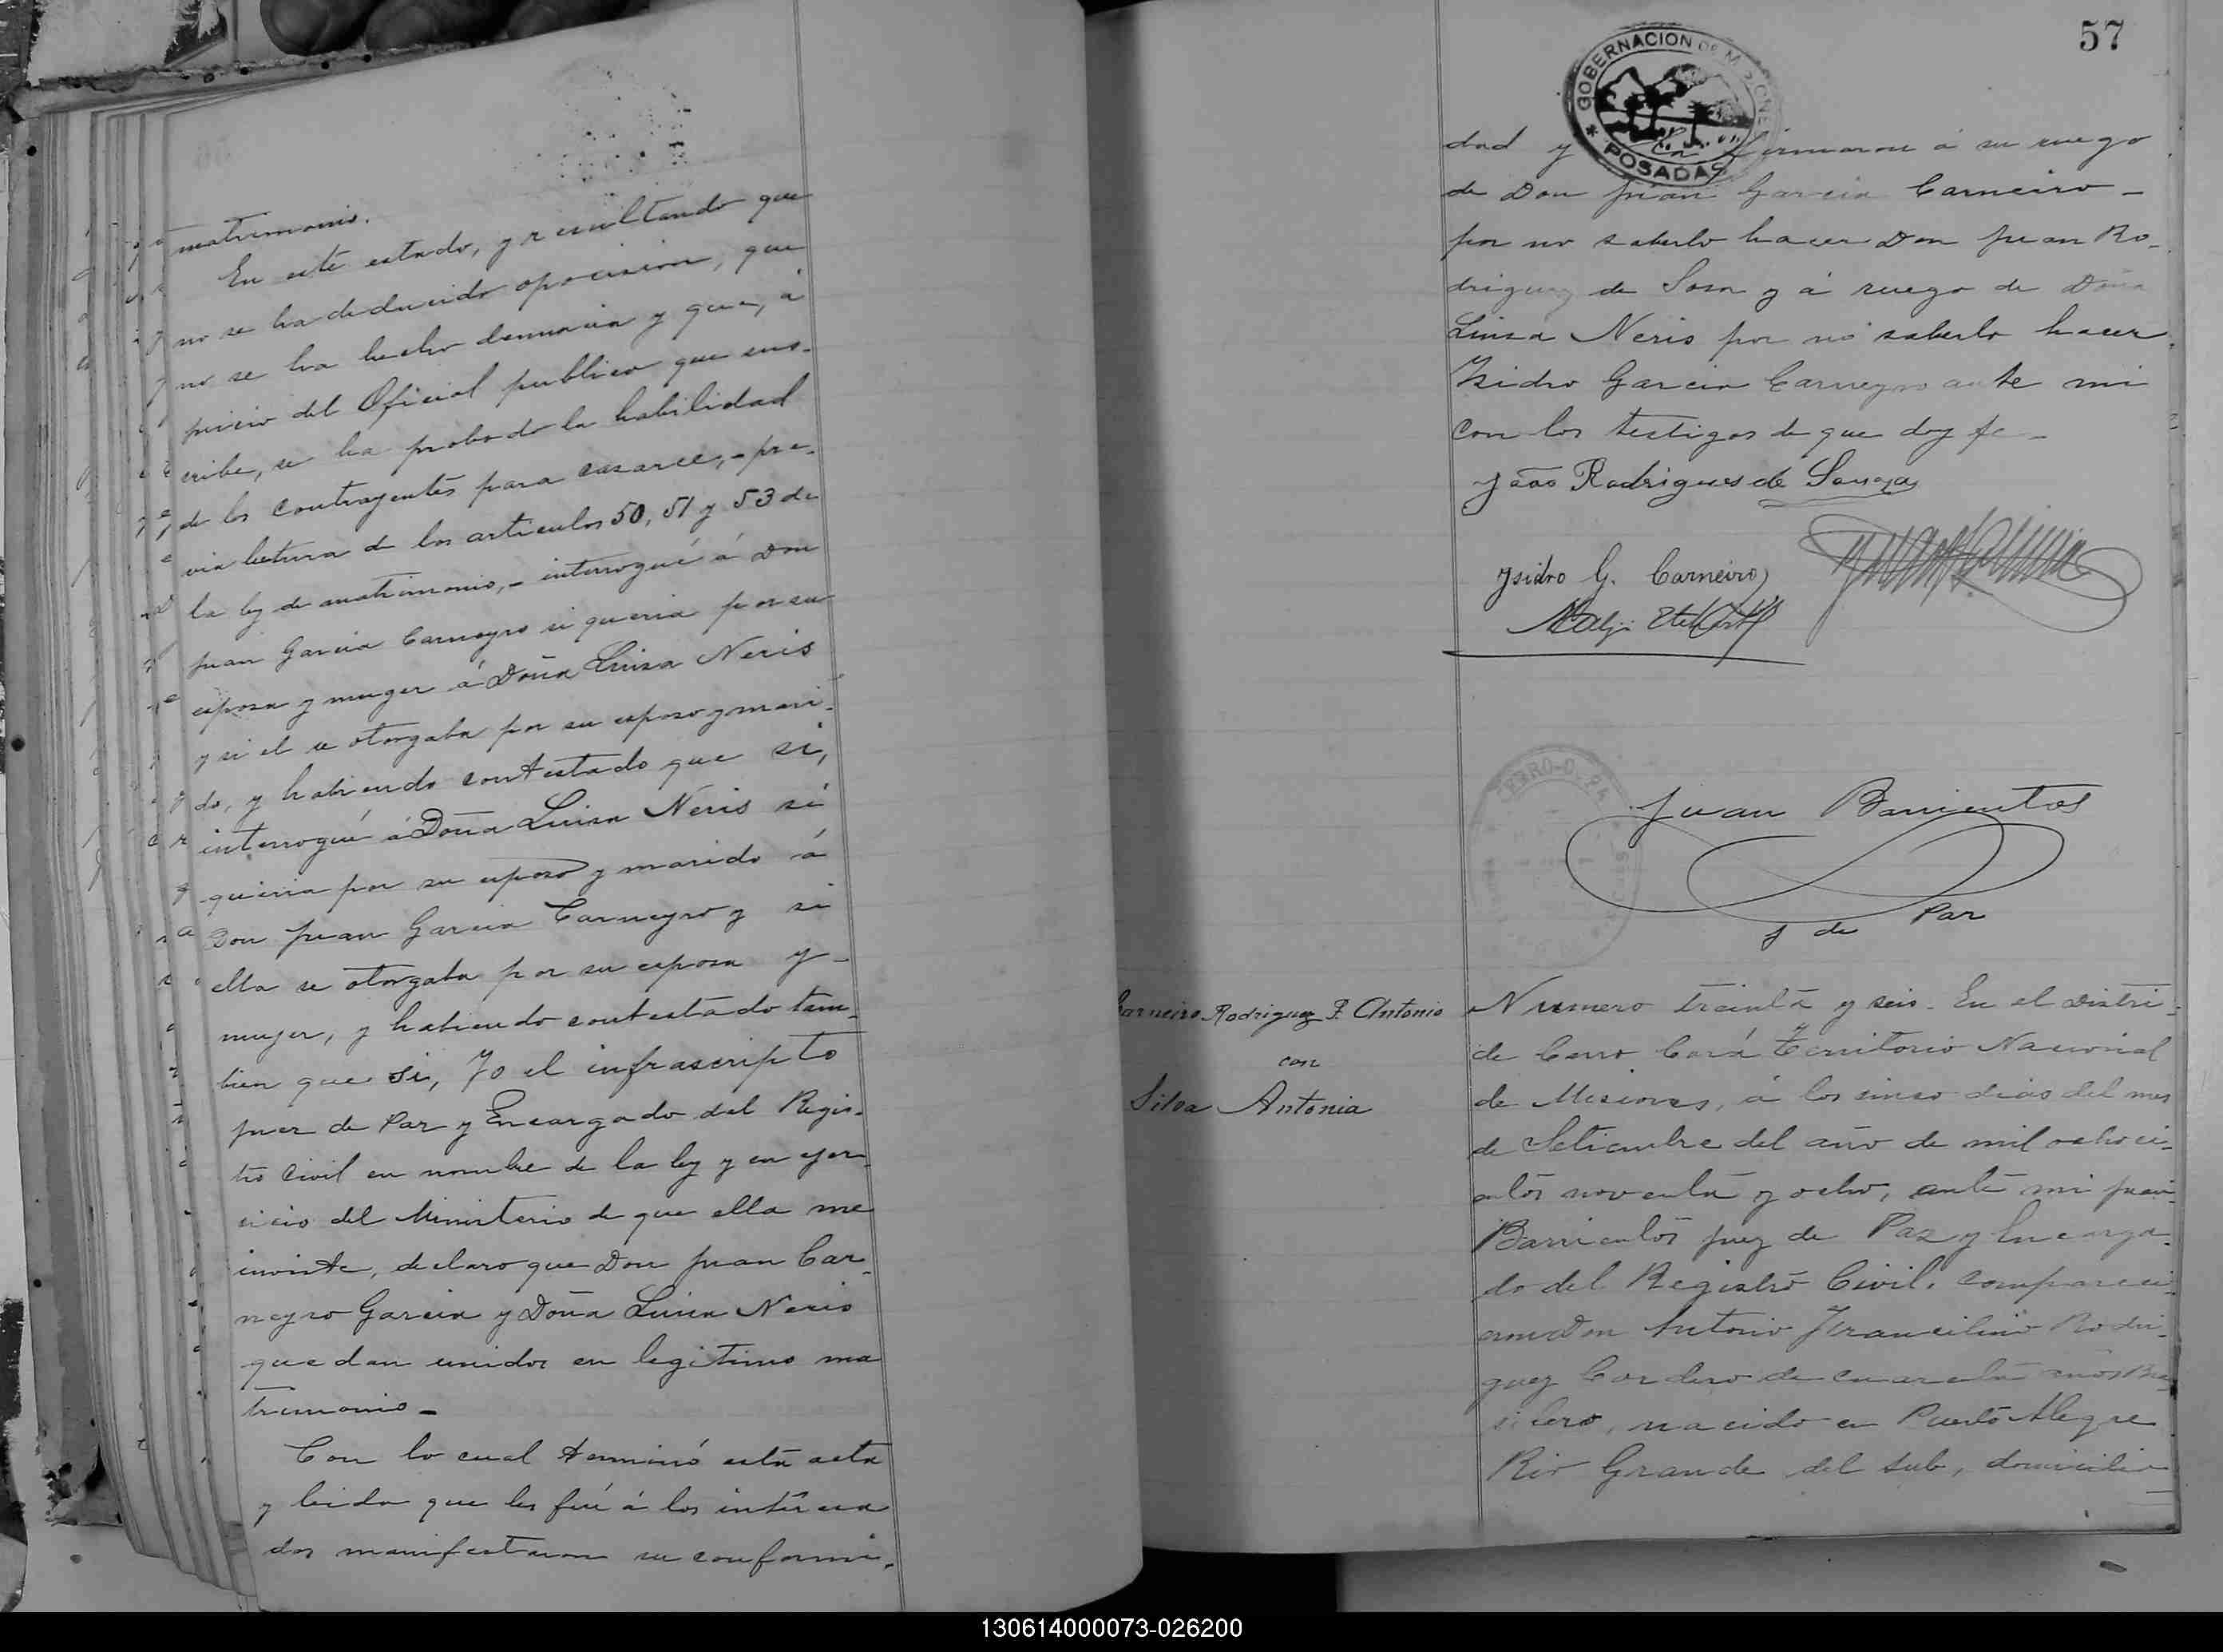 matrimonio.
En este estado, y resultando que
no se ha deducido oposicion, que
no se ha hecho denuncia y que, á
juicio del Oficial publico que sus-
cribe, se ha probado la habilidad
de los contrayentes para casarce, - pre-
via lectura de los articulos 50, 51 y 53 de
la ley de matrimonio, - interrogué á Don
Juan Garcia Carneyro si queria por su
esposa y muger á Doña Luisa Neris
y si el se otorgaba por su esposo y mari-
do, y habiendo contestado que si,
interrogué á Doña Luisa Neris si
queria por su esposo y marido á
Don Juan Garcia Carneyro y si
ella se otorgaba por su esposa y -
mujer, y habiendo contestado tam-
bien que si, Yo el infrascripto
juez de Paz y Encargado del Regis-
tro Civil en nombre de la ley y en ejer-
sicio del Ministerio de que ella me
inviste, declaro que Don Juan Car-
neyro Garcia y Doña Luisa Neris
quedan unidos en legitimo ma
trimonio -
Con lo cual terminó esta acta
y leida que les fué á los interesa
dos manifestaron su conformi-
57
GOBERNACION DE MISIONES
* POSADAS
dad y firmaron á su ruego
de Don Juan Garcia Carneiro -
por no saberlo hacer Don Juan Ro-
driguez de Sosa y á ruego de Doña
Luisa Neris por no saberlo hacer
Isidro Garcia Carneyro ante mi
con los testigos de que doy fe -
João Rodrigues de Souza
Isidro G. Carneiro
Juan Barrientos
J de Paz
Carneiro Rodriguez F. Antonio
con
Silva Antonia
Numero treinta y seis. En el Distri-
de Cerro Corá y Territorio Nacional
de Misiones, á los sinco dias del mes
de Setiembre del año de mil ochoci-
entos noventa y ocho, ante mi Juan
Barrientos juez de Paz y Encarga-
do del Registro Civil, compareci-
eron Don Antonio Francilino Rodri-
guez Cordero de cuarenta años Bra-
silero, nacido en Puerto Alegre
Rio Grande del Sub, domicilio
130614000073-026200